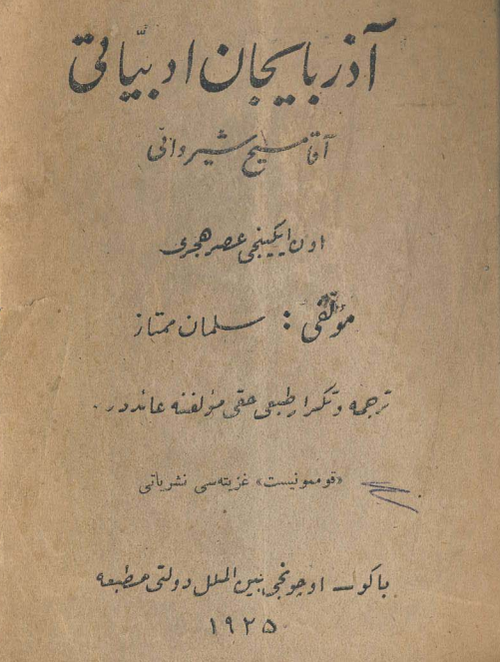 آذربایجان ادبیّاتی
آقا مسیح شیروانی
اون ایکینجی عصر هجری
مؤلّفی : سلمان ممتاز
ترجمه و تکرار طبعی حقی مؤلفنه عائددر.
«قوممونیست» غزیته‌سی نشریاتی
باکو ـ اوچونجی بین الملل دولتی مطبعه
۱۹۲۵